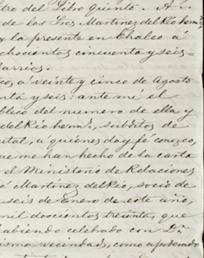 tro del Libro Quinto. A.
de los Sres. Martinez del Rio herm
y la presente en Chalco á
ochocientos cincuenta y seis
Barrios.
co, á veinte y cinco de Agosto
enta y seis: ante mi el
blico del numero de ella y
del Rio herms, subditos de
pital, á quienes doy fé conozco,
que me han hecho de la carta
el Ministerio de Relaciones
é Martinez del Rio, socio de
seis de Enero de este año,
mil doscientos treinta, que
habiendo celebrado con D.
misma vecindad, como apoderado